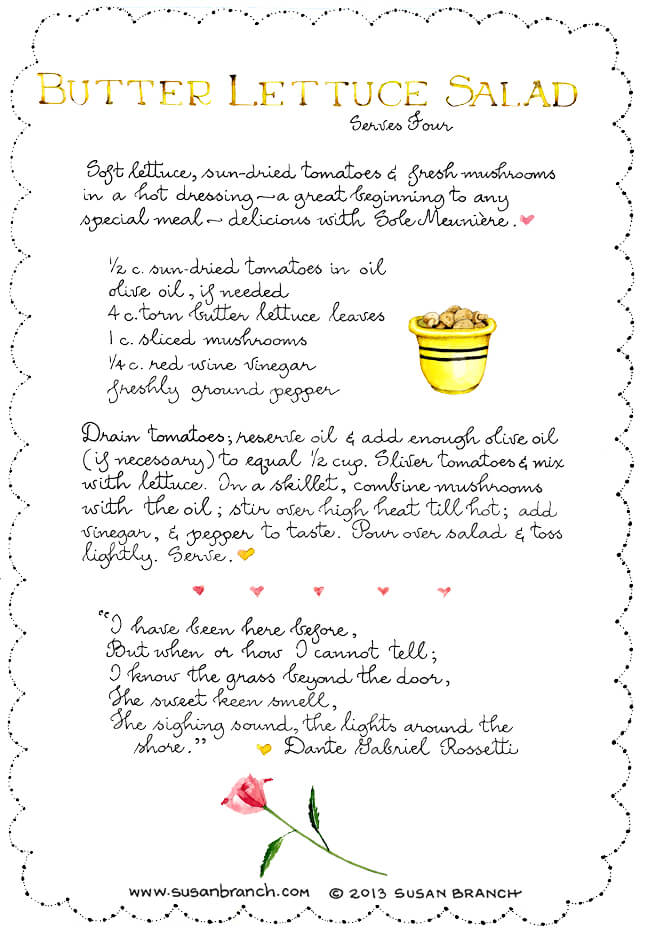 BUTTER LETTUCE SALAD
Serves Four
Soft lettuce, sun-dried tomatoes & fresh mushrooms
in a hot dressing ~ a great beginning to any
special meal ~ delicious with Sole Meunière.
½ c. sun-dried tomatoes in oil
olive oil, if needed
4 c. torn butter lettuce leaves
1 c. sliced mushrooms
¼ c. red wine vinegar
freshly ground pepper
Drain tomatoes; reserve oil & add enough olive oil
(if necessary) to equal ½ cup. Sliver tomatoes & mix
with lettuce. In a skillet, combine mushrooms
with the oil; stir over high heat till hot; add
vinegar, & pepper to taste. Pour over salad & toss
lightly. Serve.
"I have been here before,
But when or how I cannot tell;
I know the grass beyond the door,
The sweet keen smell,
The sighing sound, the lights around the
shore." Dante Gabriel Rossetti
www.susanbranch.com © 2013 SUSAN BRANCH